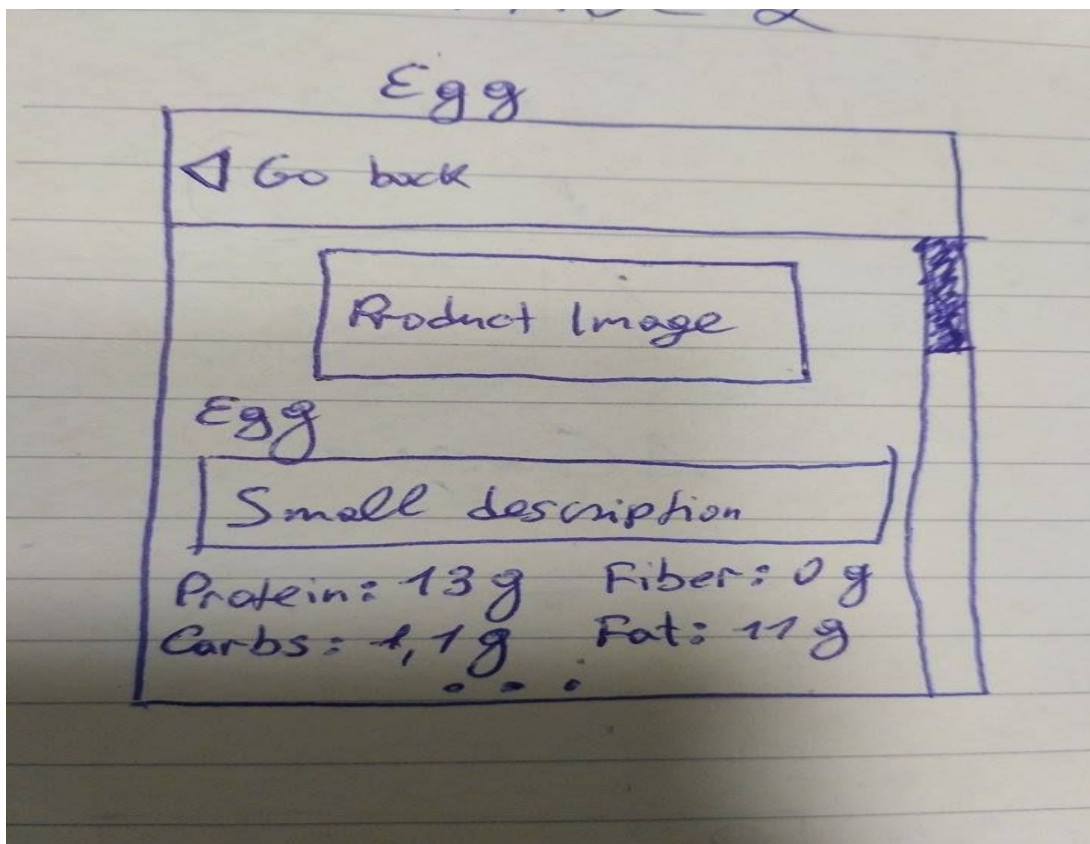 Egg
Go back
Product Image
Egg
Small description
Protein: 13 g Fiber: 0 g
Carbs: 1,1 g Fat: 11 g
...